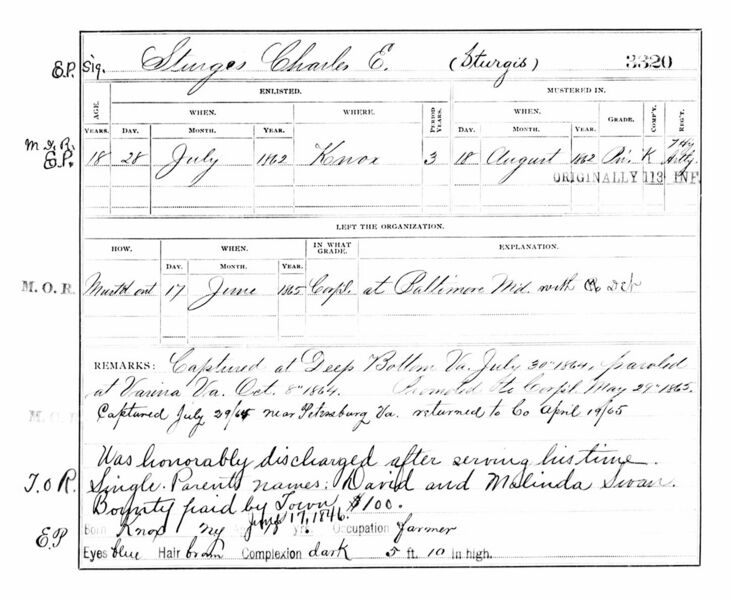 E.P. Sig. Sturges Charles E. (Sturgis) 3320
ENLISTED. MUSTERED IN.
AGE. WHEN. WHERE. PERIOD YEARS. WHEN. GRADE. COMP'Y. REG'T.
YEARS. DAY. MONTH. YEAR. DAY. MONTH. YEAR.
M.I.R. E.P. 18 28 July 1862 Knox 3 18 August 1862 Pri. K 7 Hy Artly.
ORIGINALLY 113 INF.
LEFT THE ORGANIZATION.
HOW. WHEN. IN WHAT GRADE. EXPLANATION.
DAY. MONTH. YEAR.
M.O.R. Must'd out 17 June 1865 Corpl. at Baltimore Md. with Co
REMARKS: Captured at Deep Bottom Va. July 30" 1864, paroled
at Varina Va. Oct. 8" 1864. Promoted to Corpl. May 29" 1865.
Captured July 29/64 near Petersburg Va. returned to Co April 19/65
Was honorably discharged after serving his time.
T.O.R. Single. Parents names: David and Malinda Swan.
Bounty paid by Town $100.
E.P. Born Knox Ny 17, 1846. yrs. Occupation farmer
Eyes blue Hair brown Complexion dark 5 ft. 10 in high.